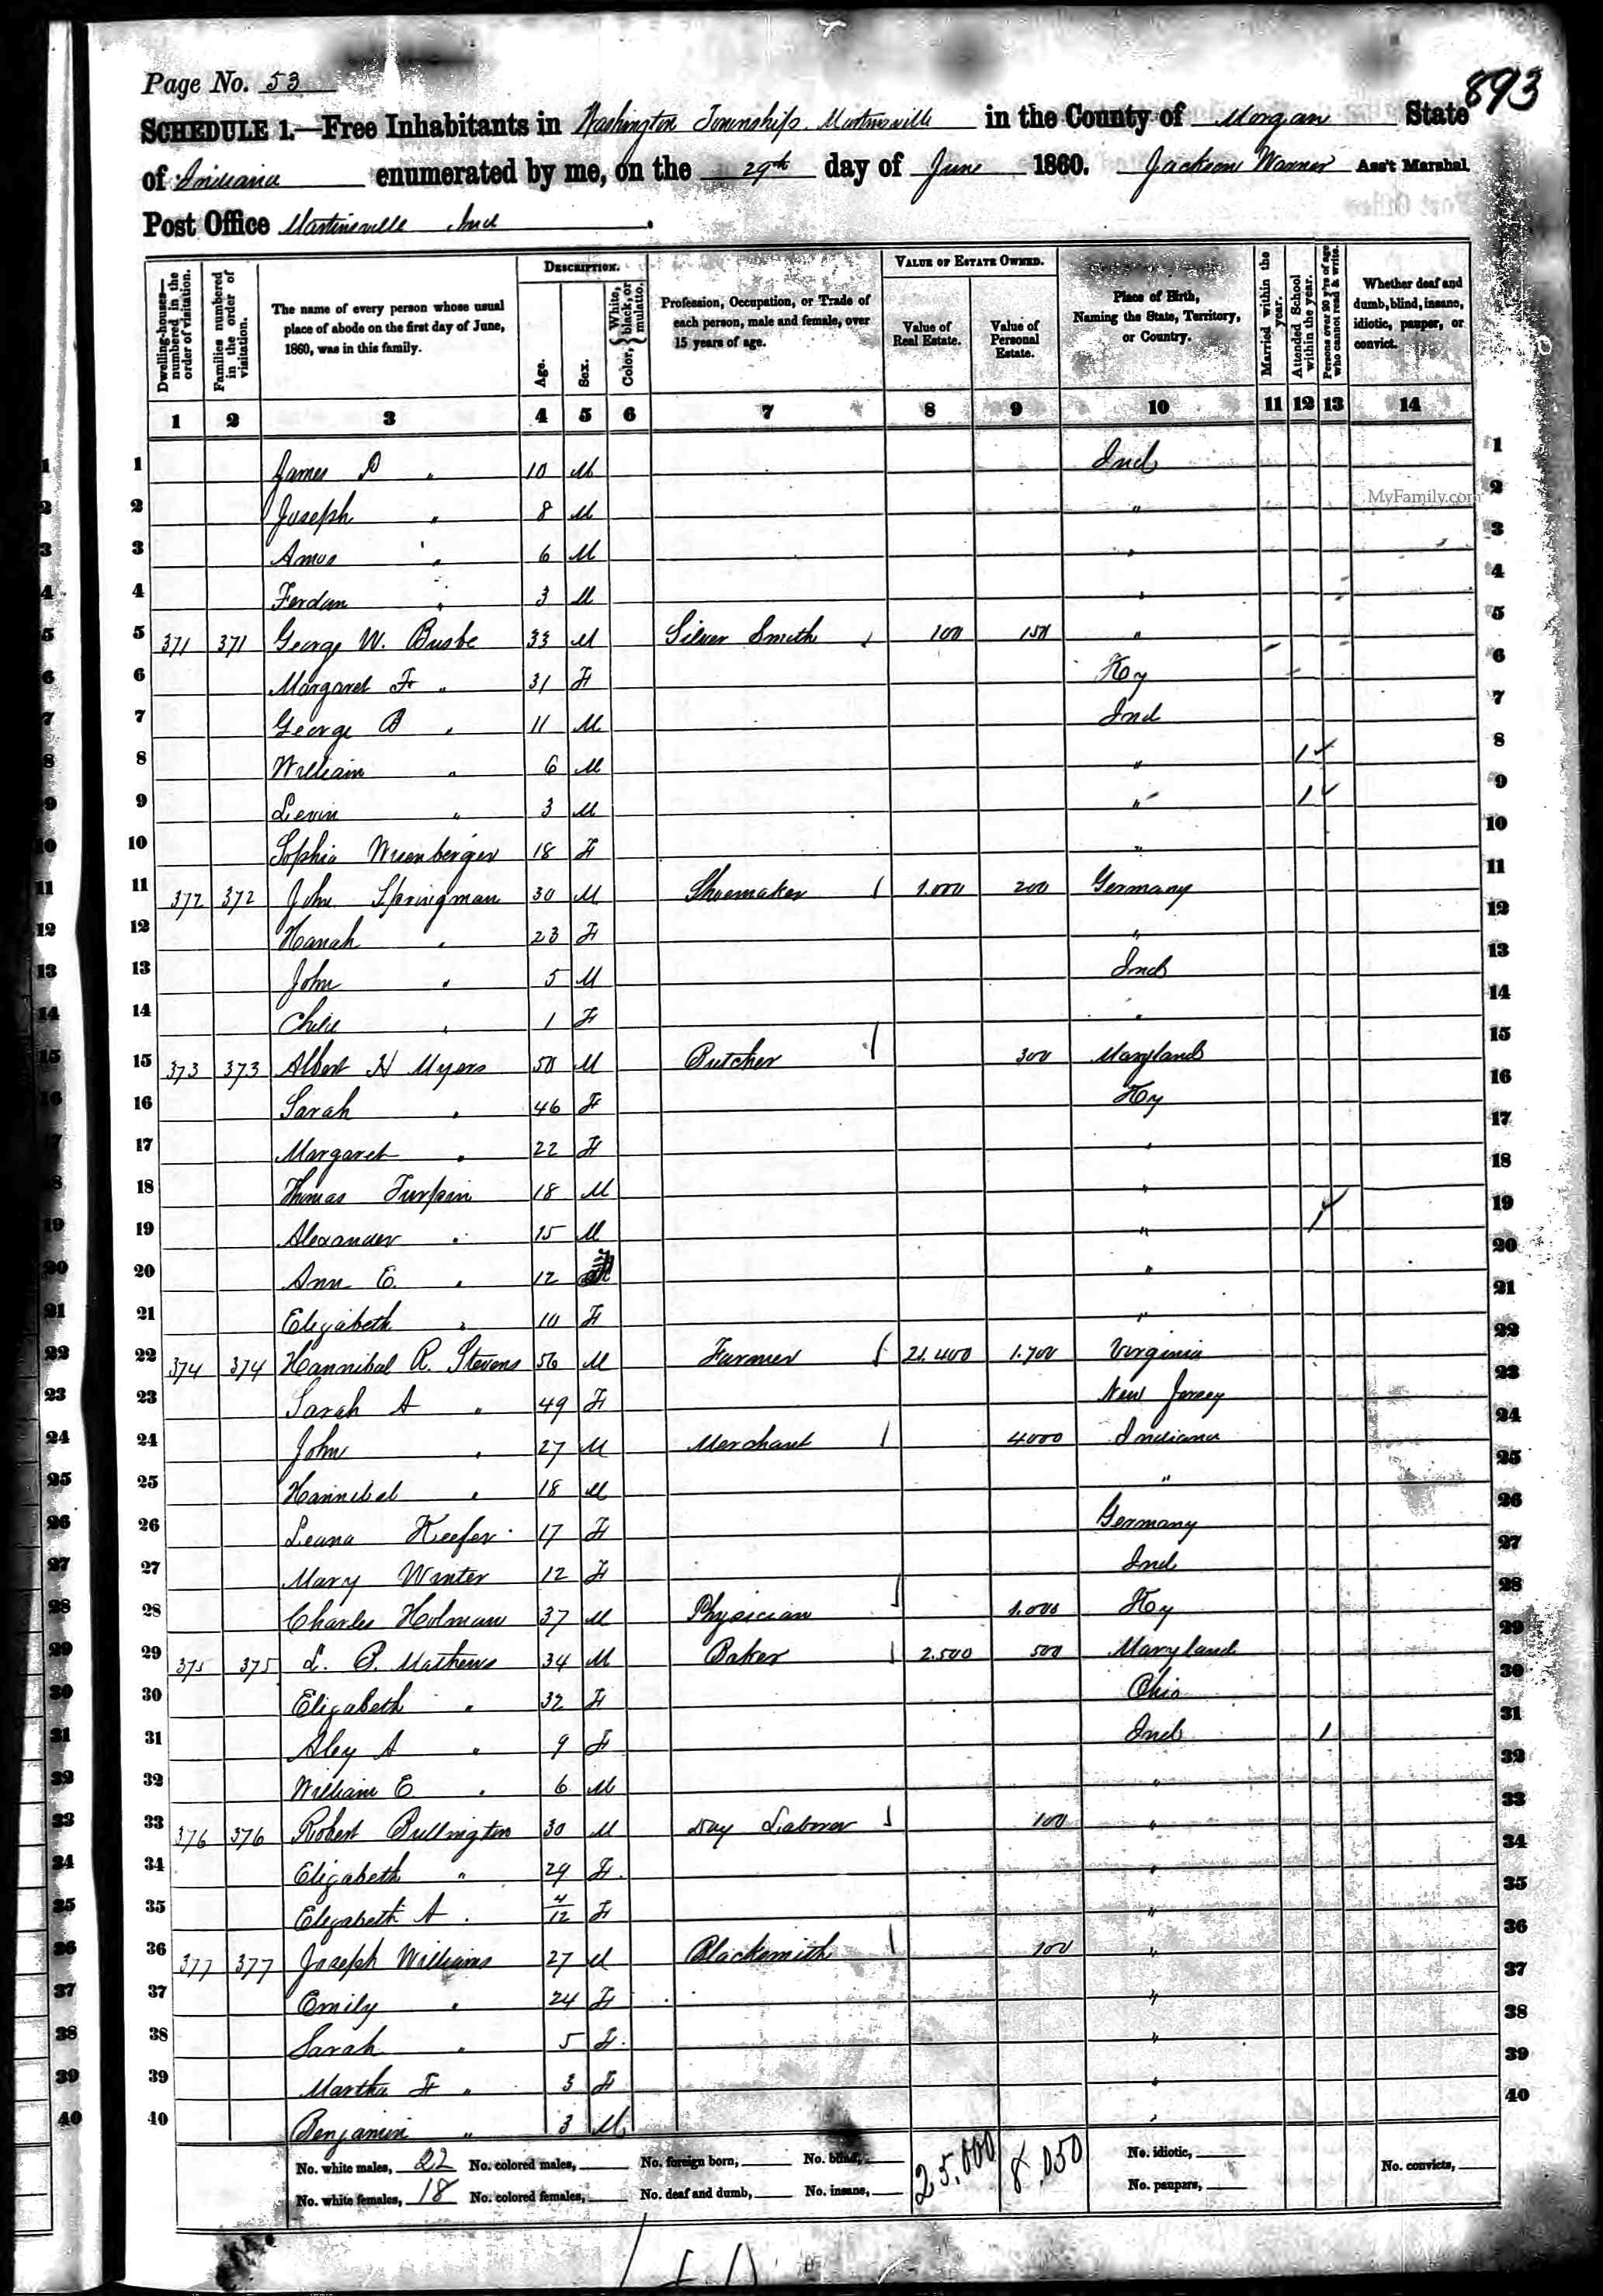 893
Page No. 53
SCHEDULE 1.—Free Inhabitants in Washington Township Martinsville in the County of Morgan State
of Indiana enumerated by me, on the 29th day of June 1860. Jackson Warner Ass't Marshal
Post Office Martinsville Ind.
Dwelling-houses—numbered in the order of visitation.
Families numbered in the order of visitation.
The name of every person whose usual place of abode on the first day of June, 1860, was in this family.
DESCRIPTION.
Age.
Sex.
Color, { White, black, or mulatto.
Profession, Occupation, or Trade of each person, male and female, over 15 years of age.
VALUE OF ESTATE OWNED.
Value of Real Estate.
Value of Personal Estate.
Place of Birth, Naming the State, Territory, or Country.
Married within the year.
Attended School within the year.
Persons over 20 y'rs of age who cannot read & write.
Whether deaf and dumb, blind, insane, idiotic, pauper, or convict.
1 2 3 4 5 6 7 8 9 10 11 12 13 14
1 James D " 10 M Ind 1
MyFamily.com
2 Joseph " 8 M " 2
3 Amos " 6 M " 3
4 Ferdan " 3 M " 4
5 371 371 George W. Busbe 33 M Silver Smith 100 150 " 5
6 Margaret F " 31 F Ky 6
7 George B " 11 M Ind 7
8 William " 6 M " 1 8
9 Levin " 3 M " 1 9
10 Sophia 18 F " 10
11 372 372 John Springman 30 M Shoemaker 1.000 200 Germany 11
12 Hanah " 23 F " 12
13 John " 5 M Ind 13
14 Child " 1 F " 14
15 373 373 Albert H Myers 50 M Butcher 300 Maryland 15
16 Sarah " 46 F Ky 16
17 Margaret " 22 F " 17
18 Thomas Turpin 18 M " 18
19 Alexander " 15 M " 1 19
20 Ann E. " 12 F " 20
21 Elizabeth " 10 F " 21
22 374 374 Hannibal R. Stevens 56 M Farmer 21.400 1.700 Virginia 22
23 Sarah A " 49 F New Jersey 23
24 John " 27 M Merchant 4000 Indiana 24
25 Hannibal " 18 M " 25
26 Leana Keefer 17 F Germany 26
27 Mary Winter 12 F Ind 27
28 Charles Holman 37 M Physician 1.000 Ky 28
29 375 375 L. P. Mathews 34 M Baker 2.500 500 Maryland 29
30 Elizabeth " 32 F Ohio 30
31 Aley A " 9 F Ind 1 31
32 William E " 6 M " 32
33 376 376 Robert Bullington 30 M Day Laborer 100 " 33
34 Elizabeth " 29 F " 34
35 Elizabeth A " 4/12 F " 35
36 377 377 Joseph Williams 27 M Blacksmith 100 " 36
37 Emily " 24 F " 37
38 Sarah " 5 F " 38
39 Martha F " 3 F " 39
40 Benjamin " 3 M " 40
No. white males, 22 No. colored males, No. foreign born, No. blind, 25.000 8.050 No. idiotic, No. convicts,
No. white females, 18 No. colored females, No. deaf and dumb, No. insane, No. paupers,